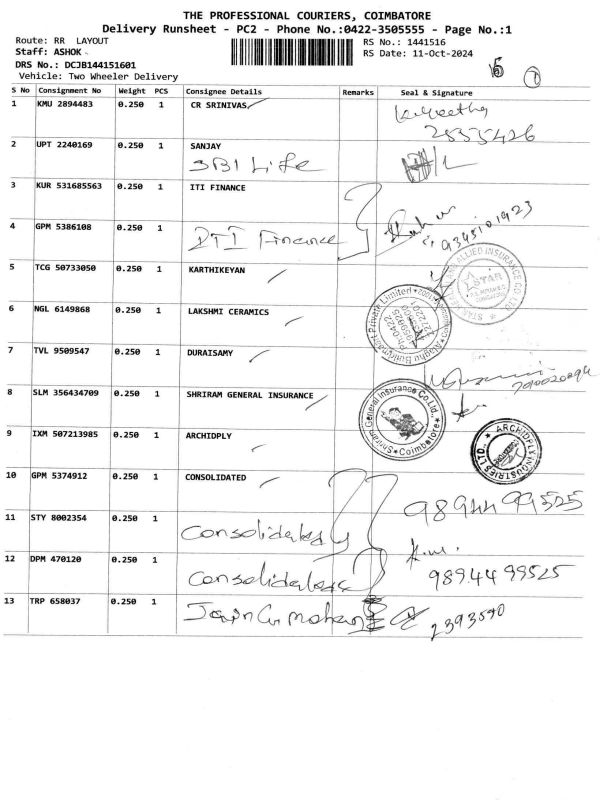 THE PROFESSIONAL COURIERS, COIMBATORE
Delivery Runsheet - PC2 - Phone No.:0422-3505555 - Page No.:1
Route: RR LAYOUT
RS No.: 1441516
Staff: ASHOK
RS Date: 11-Oct-2024
DRS No.: DCJB144151601
Vehicle: Two Wheeler Delivery
S No Consignment No Weight PCS Consignee Details Remarks Seal & Signature
1 KMU 2894483 0.250 1 CR SRINIVAS
2555426
2 UPT 2240169 0.250 1 SANJAY
SBI Life
3 KUR 531685563 0.250 1 ITI FINANCE
4 GPM 5386108 0.250 1
ITI Finance
9345101923
5 TCG 50733050 0.250 1 KARTHIKEYAN
STAR
6 NGL 6149868 0.250 1 LAKSHMI CERAMICS
7 TVL 9509547 0.250 1 DURAISAMY
8 SLM 356434709 0.250 1 SHRIRAM GENERAL INSURANCE
Shriram General Insurance Co.Ltd.,
Coimbatore
9 IXM 507213985 0.250 1 ARCHIDPLY
ARCHIDPLY INDUSTRIES LTD.,
10 GPM 5374912 0.250 1 CONSOLIDATED
98944 99525
11 STY 8002354 0.250 1
12 DPM 470120 0.250 1
98944 99525
13 TRP 658037 0.250 1
2393590